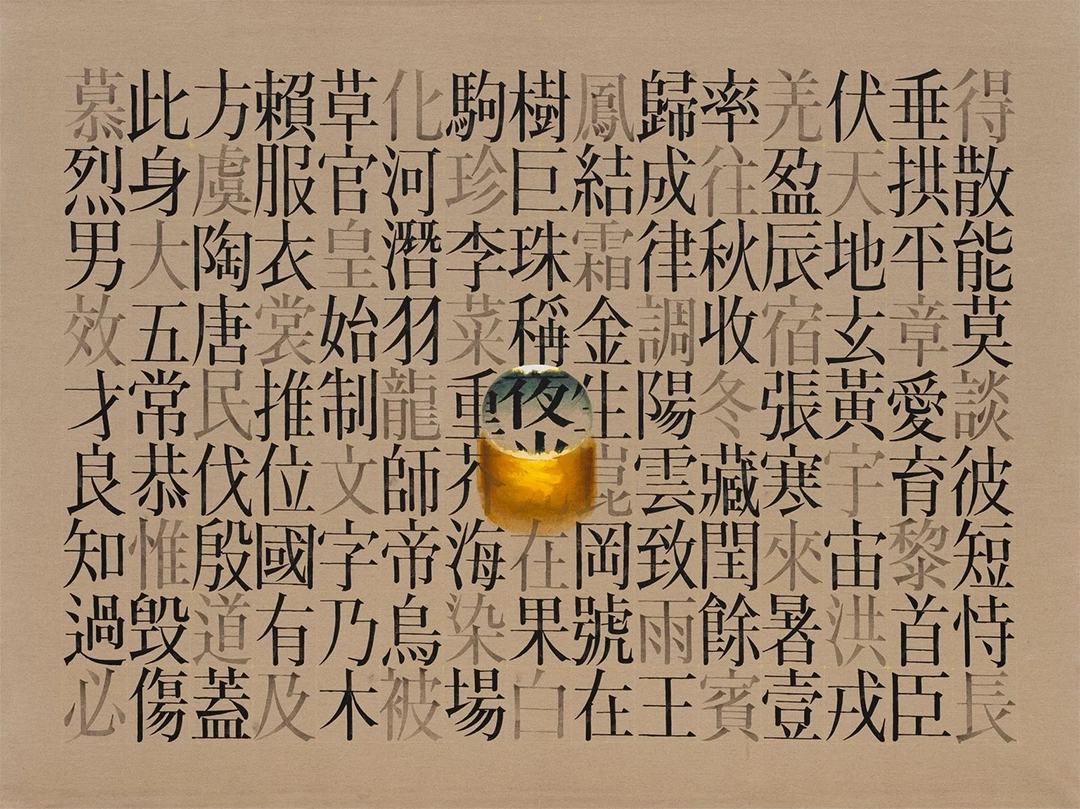 得散能莫談彼短恃長
垂拱平章愛育黎首臣
伏天地玄黃宇宙洪戎
羌盈辰宿張寒來暑壹
率往秋收冬藏閏餘賓
歸成律調陽雲致雨王
鳳結霜金生崑岡號在
樹巨珠稱夜光在果白
駒珍李菜重芥海染場
化河潛羽龍師帝鳥被
草官皇始制文字乃木
賴服衣裳推位國有及
方虞陶唐民伐殷道蓋
此身大五常恭惟毁傷
慕烈男效才良知過必